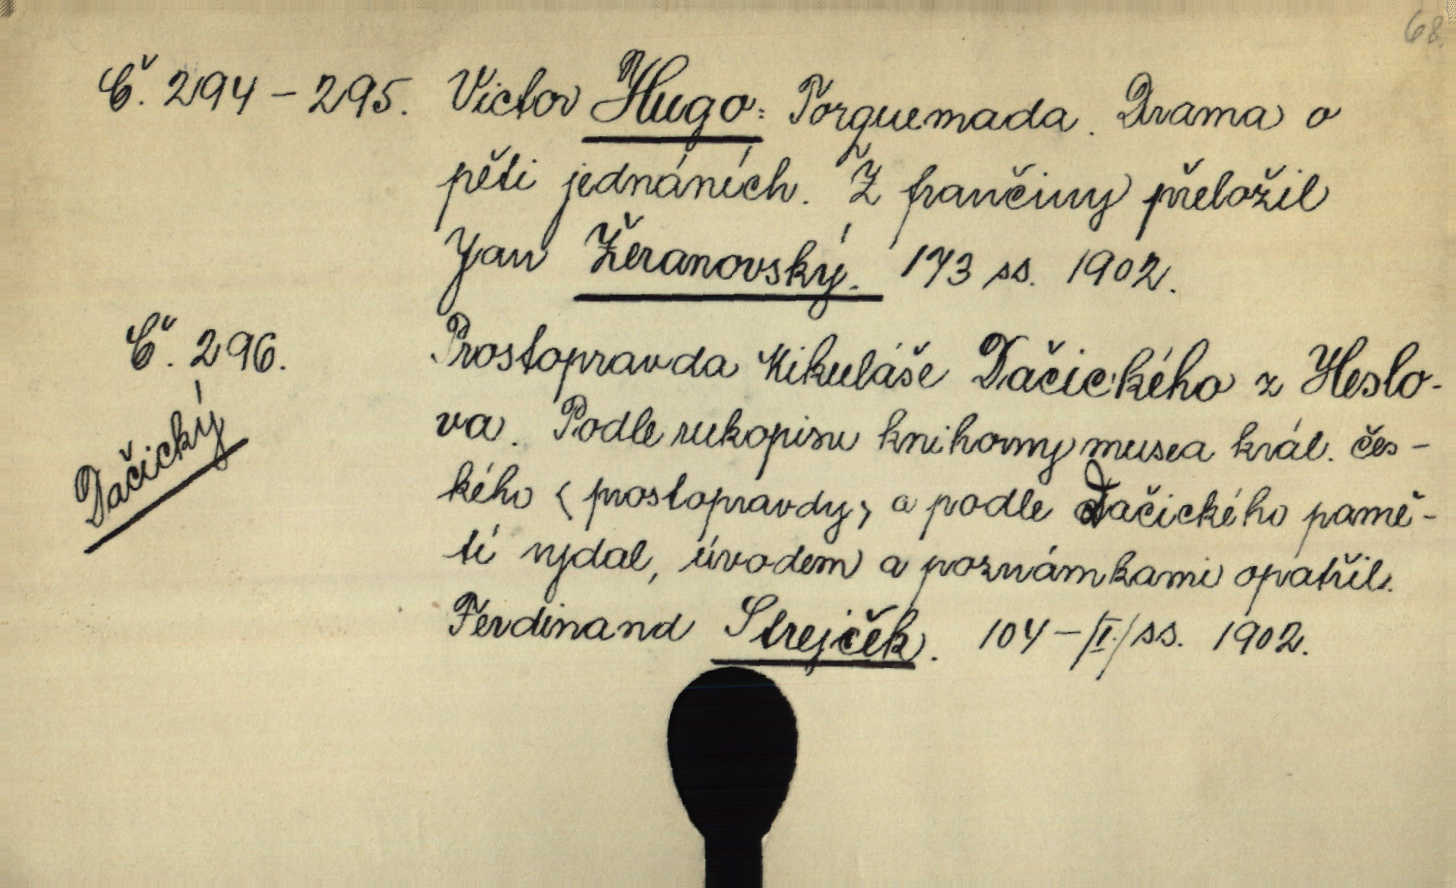 68.
Č. 294 – 295. Victor Hugo: Torquemada. Drama o
pěti jednáních. Z frančiny přeložil
Jan Žeranovský. 173 ss. 1902.
Č. 296. Prostopravda Mikuláše Dačického z Heslo-
va. Podle rukopisu knihovny musea král. čes-
kého (prostopravdy) a podle Dačického pamě-
tí vydal, úvodem a poznámkami opatřil
Ferdinand Strejček. 104 – /I./ ss. 1902.
Dačický